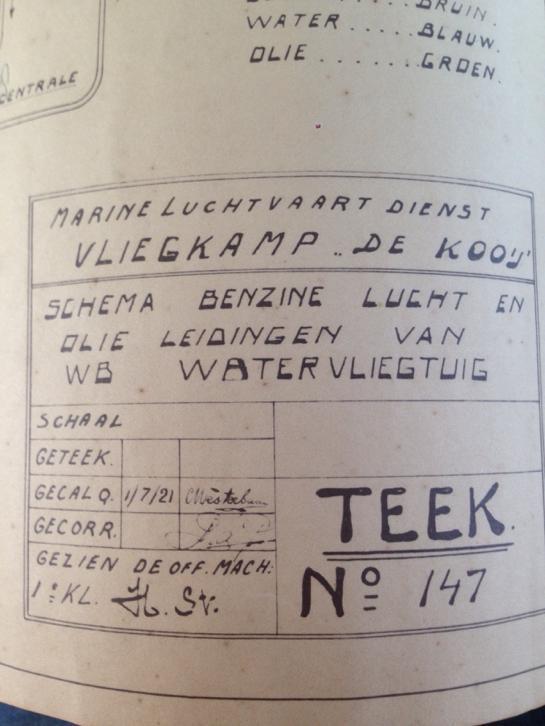 BRUIN.
WATER ..... BLAUW.
OLIE ....... GROEN.
CENTRALE
MARINE LUCHTVAART DIENST
VLIEGKAMP „DE KOOIJ"
SCHEMA BENZINE LUCHT EN
OLIE LEIDINGEN VAN
WB WATERVLIEGTUIG
SCHAAL
GETEEK.
GECALQ. 1/7/21
GECORR.
GEZIEN DE OFF. MACH:
1e KL. H. St.
TEEK.
No 147